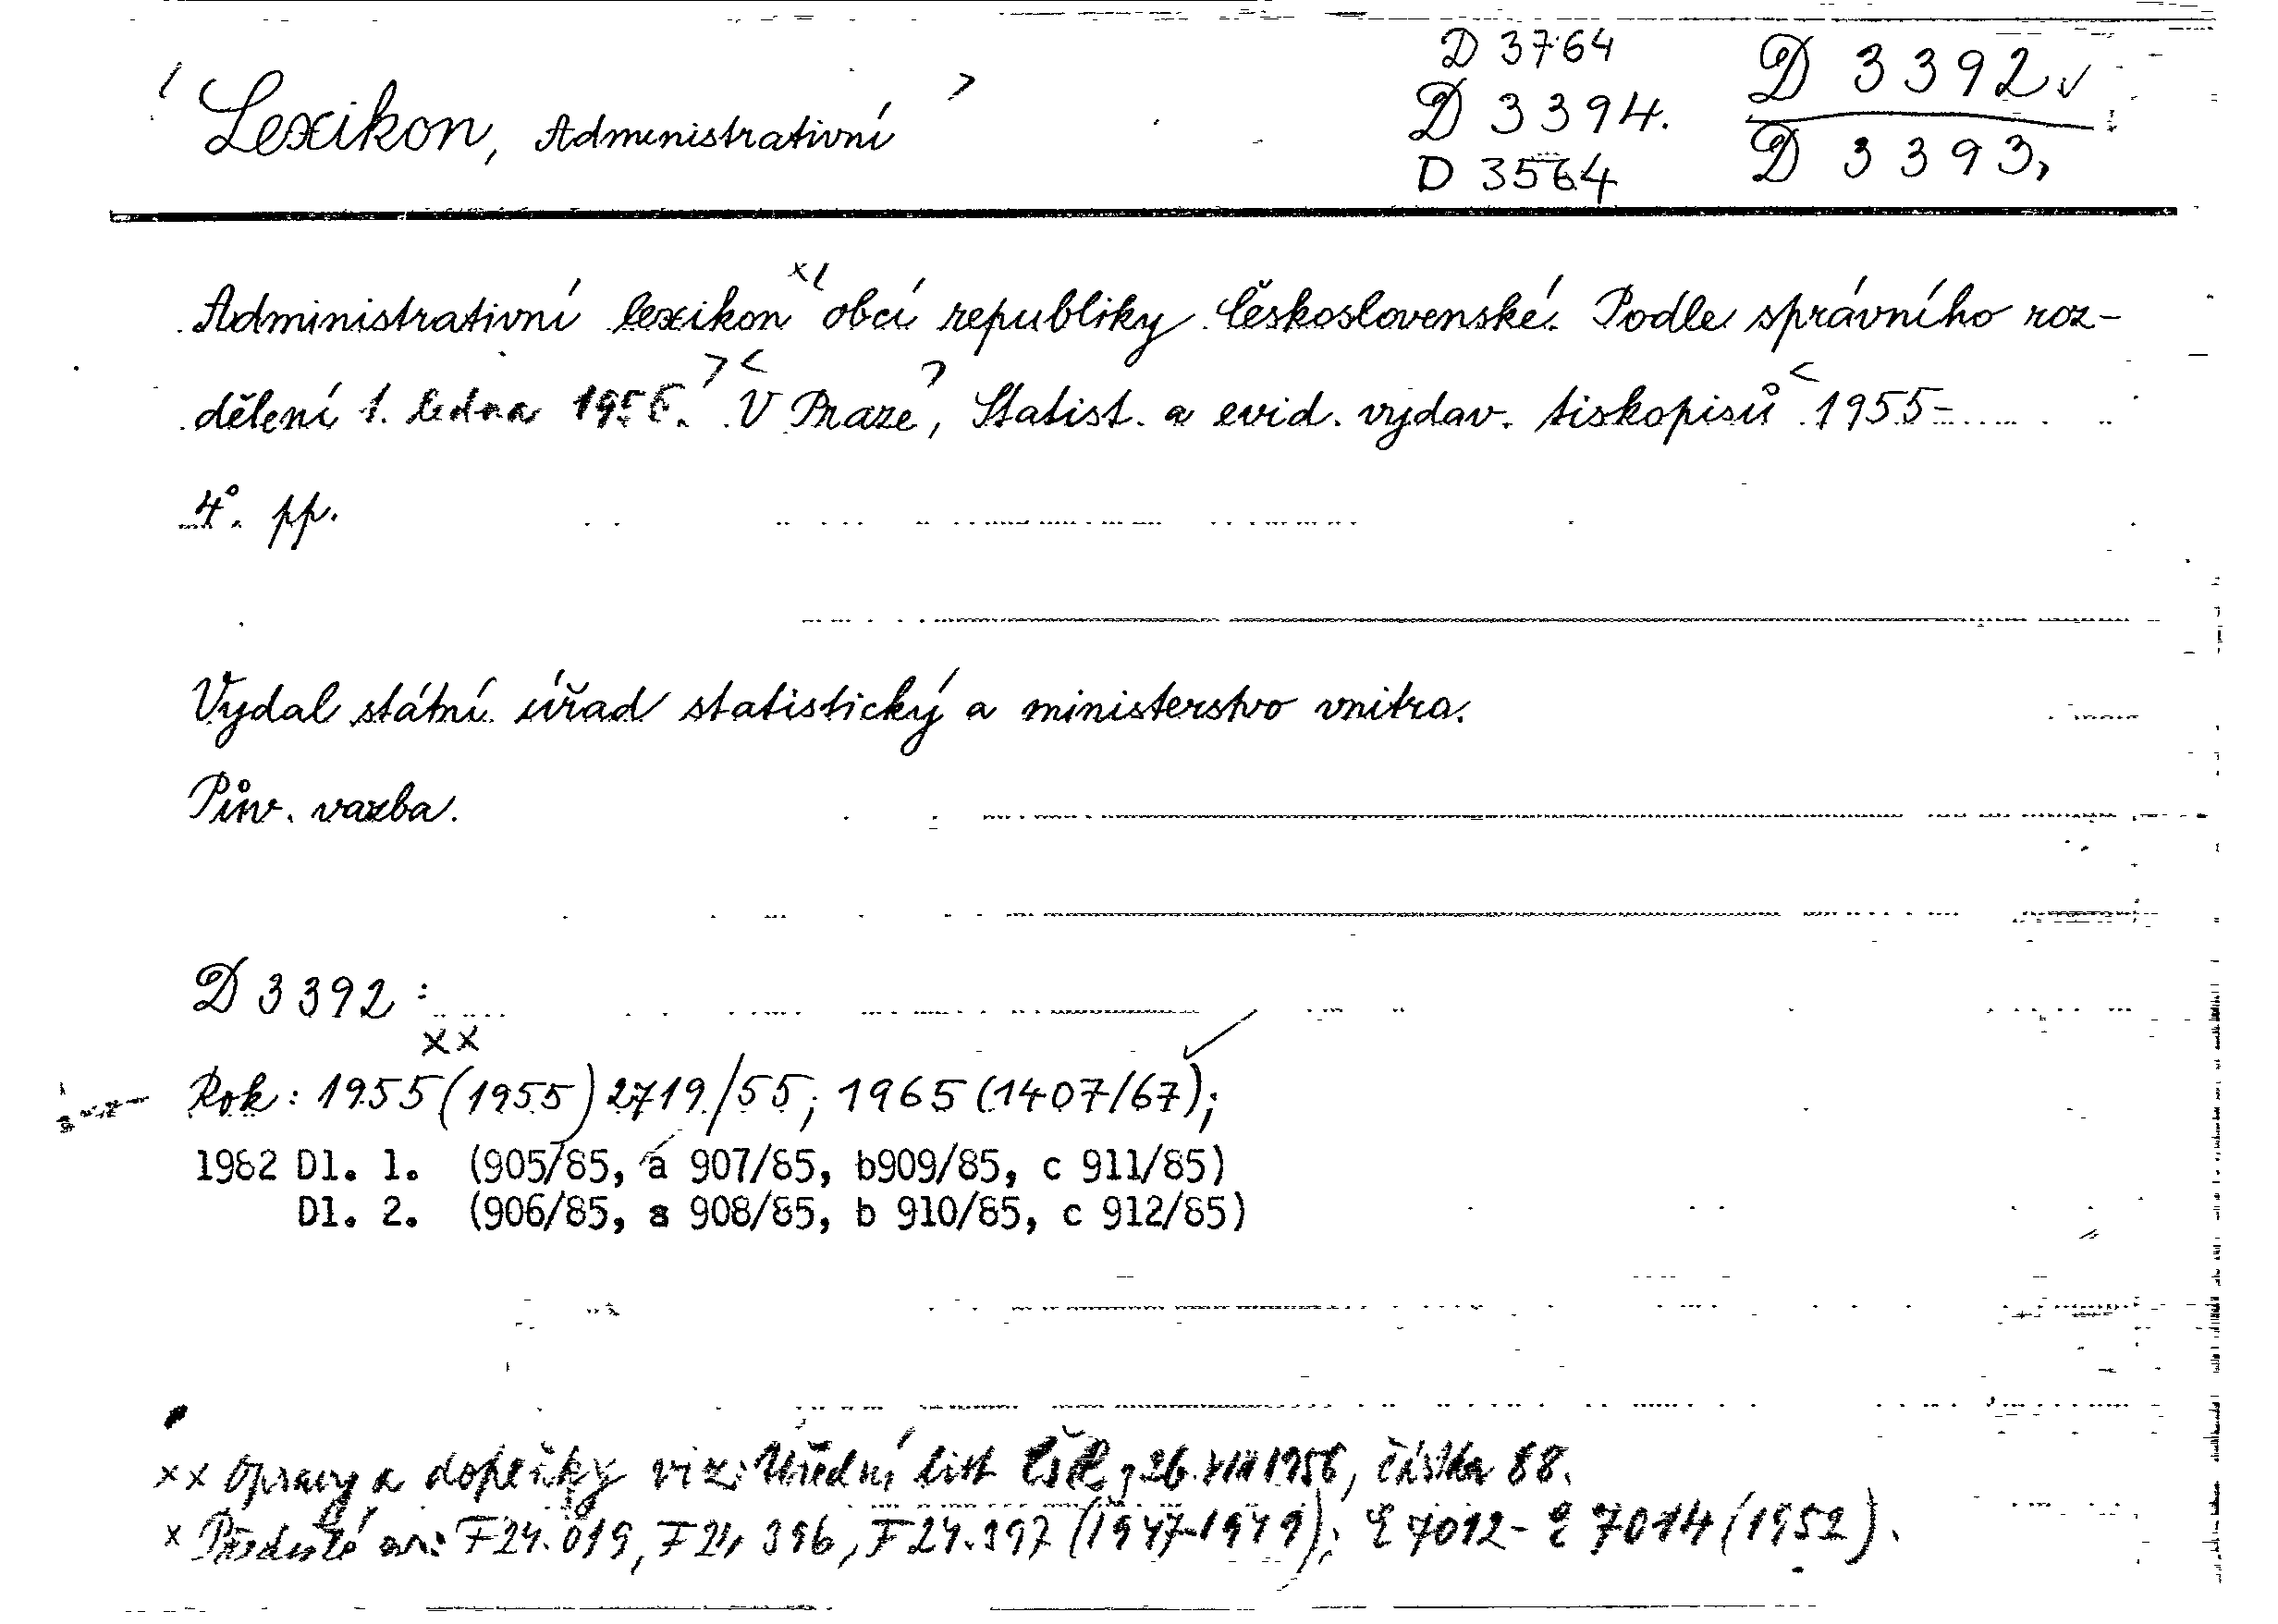 Lexikon, Administrativní
D 3764
D 3394.
D 3564
D 3392
D 3393,
Administrativní lexikon x obcí republiky československé. Podle správního roz-
dělení 1. ledna 1955. V Praze, Statist. a evid. vydav. tiskopisů 1955-
4°. pp.
Vydal státní úřad statistický a ministerstvo vnitra.
Pův. vazba.
D 3392:
xx
Rok: 1955 (1955) 2719/55; 1965 (1407/67);
1982 Dl. 1. (905/85, a 907/85, b909/85, c 911/85)
Dl. 2. (906/85, a 908/85, b 910/85, c 912/85)
xx Opravy a doplňky viz: Úřední list z 26. 1956, částka 88.
x F 24.019, F 24 396, F 24.397 (1947-1949); E 7012 - E 7014 (1952).